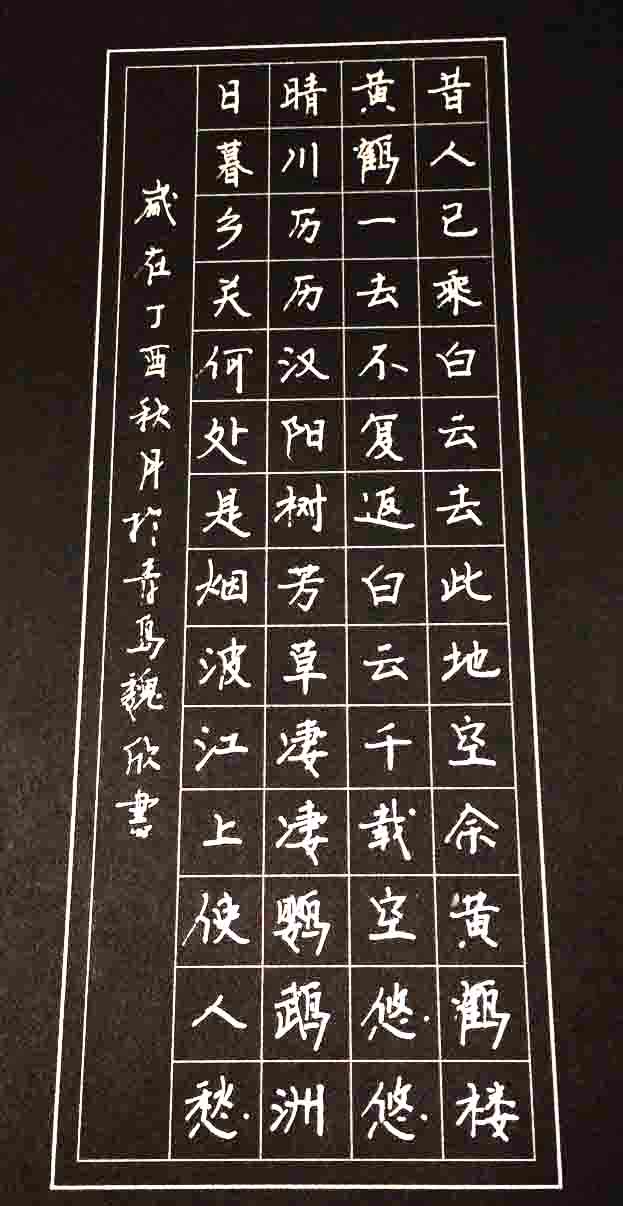 昔人已乘白云去此地空余黄鹤楼
黄鹤一去不复返白云千载空悠悠
晴川历历汉阳树芳草凄凄鹦鹉洲
日暮乡关何处是烟波江上使人愁
岁在丁酉秋月于青岛魏欣书